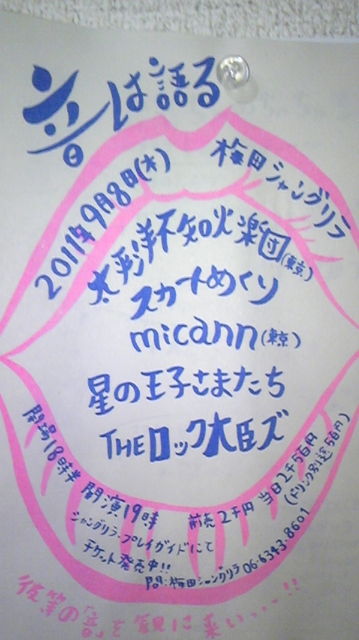 音は語る
2011年9月8日(木)
梅田シャングリラ
太平洋不知火楽団(東京)
スカートめくり
micann(東京)
星の王子さまたち
THEロック大臣ズ
開場18時半 開演19時 前売2千円 当日2千5百円
(ドリンク別途5百円)
シャングリラ・プレイガイドにて
チケット発売中!!
問:梅田シャングリラ 06-6343-8601
彼等の音を観に来い…!!